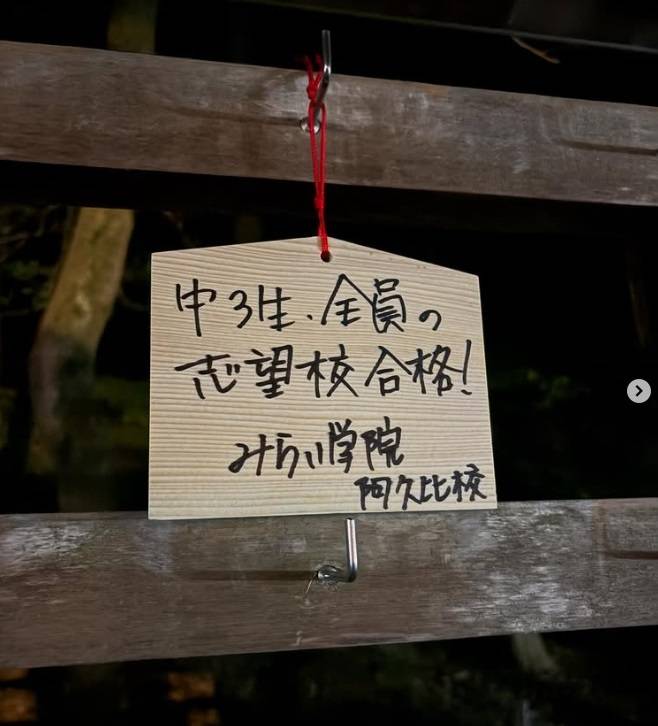 中3生、全員の
志望校合格!
みらい学院
阿久比校